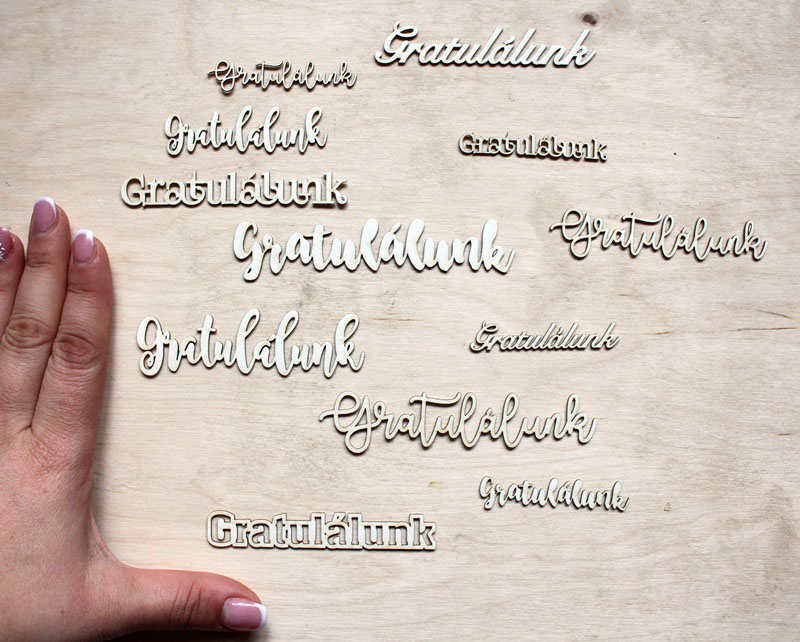 Gratulálunk
Gratulálunk
Gratulálunk
Gratulálunk
Gratulálunk
Gratulálunk
Gratulálunk
Gratulálunk
Gratulálunk
Gratulálunk
Gratulálunk
Gratulálunk